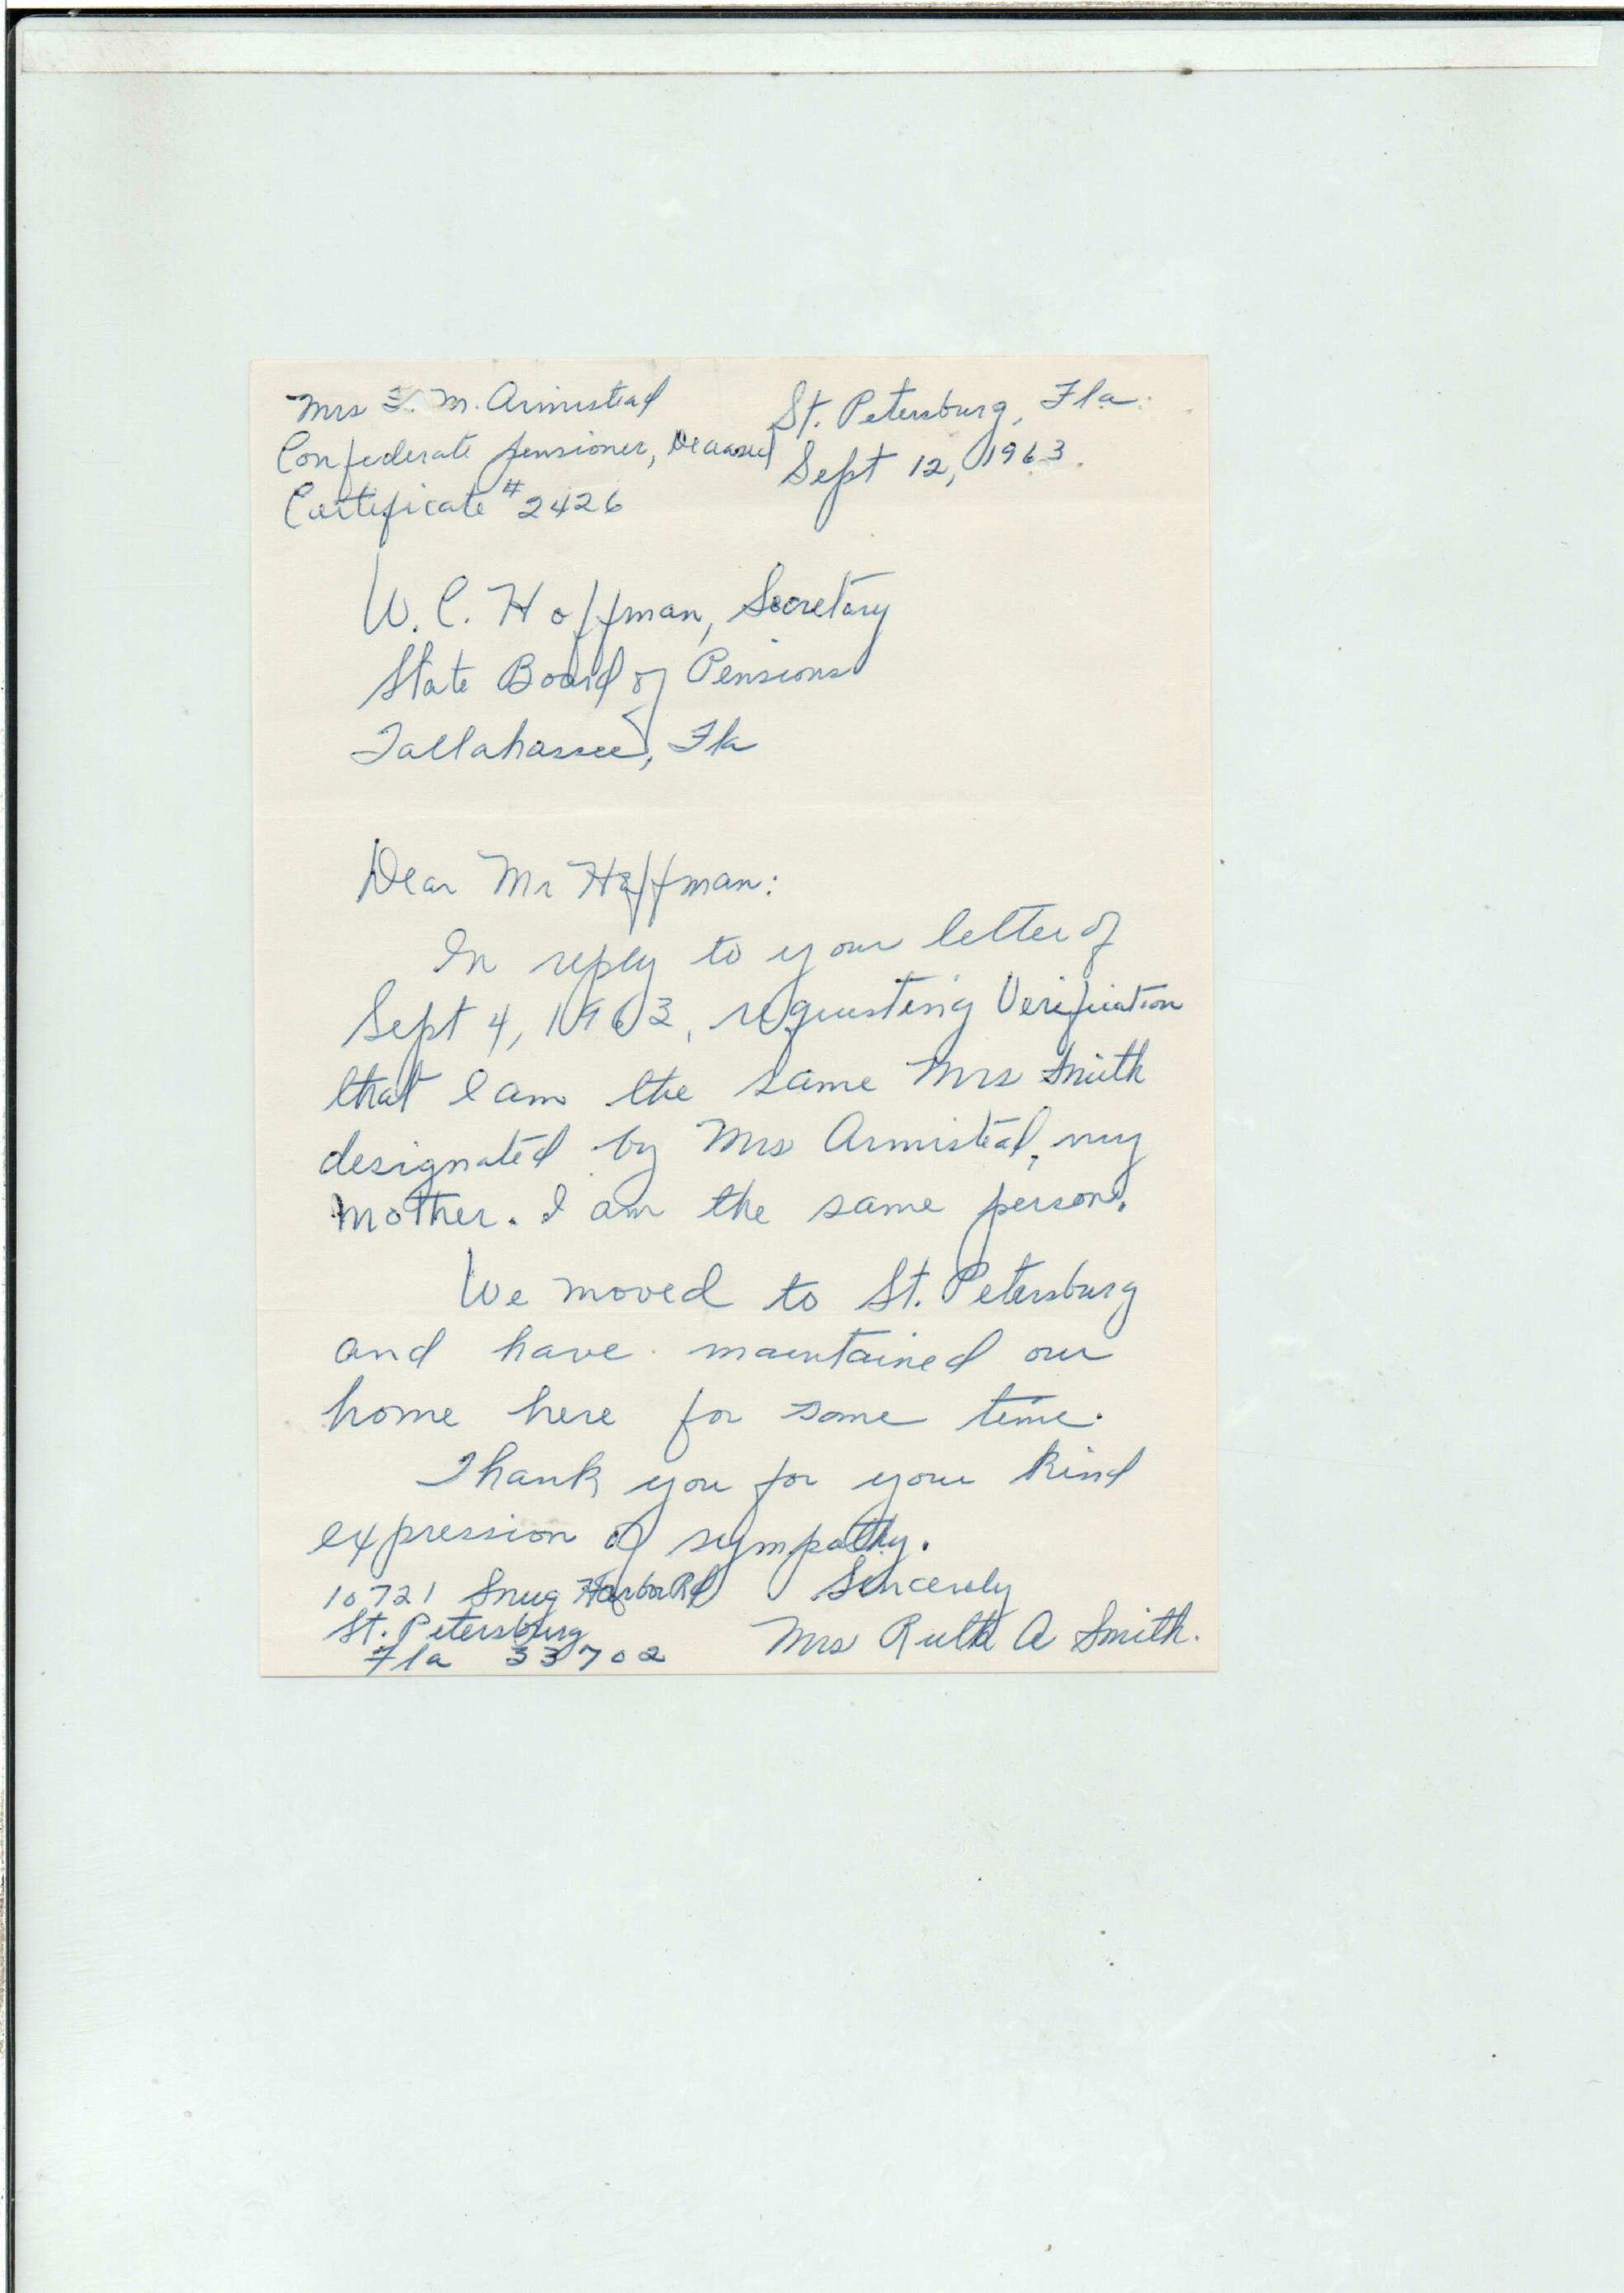 Mrs F. M. Armistead
Confederate pensioner, Deceased
Certificate #2426
St. Petersburg, Fla.
Sept 12, 1963.
W. C. Hoffman, Secretary
State Board of Pensions
Tallahassee, Fla
Dear Mr Hoffman:
In reply to your letter of
Sept 4, 1963, requesting Verification
that I am the same Mrs Smith
designated by Mrs Armistead, my
mother. I am the same person.
We moved to St. Petersburg
and have maintained our
home here for some time.
Thank you for your kind
expression of sympathy.
Sincerely
Mrs Ruth A Smith.
10721 Snug Harbor Rd
St. Petersburg
Fla 33702